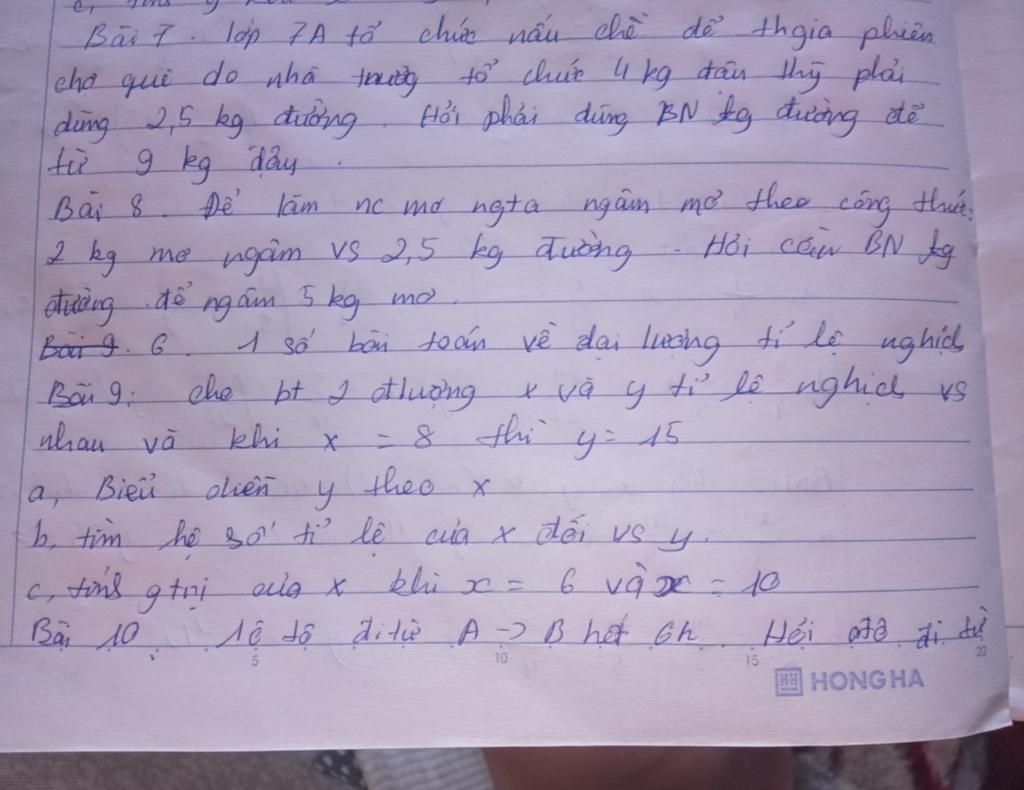 Bài 7. lớp 7A tổ chức nấu chè để thgia phiên
chợ quê do nhà trường tổ chức 4 kg đậu thì phải
dùng 2,5 kg đường. Hỏi phải dùng BN kg đường để
từ 9 kg đậu.
Bài 8. Để làm nc mơ ngta ngâm mơ theo công thức:
2 kg mơ ngâm vs 2,5 kg đường. Hỏi cần BN kg
đường để ngâm 5 kg mơ.
Bài 9. 6. 1 số bài toán về đại lượng tỉ lệ nghịch
Bài 9: cho bt 2 đlượng x và y tỉ lệ nghịch vs
nhau và khi x = 8 thì y = 15
a, Biểu diễn y theo x
b, tìm hệ số tỉ lệ của x đối vs y.
c, tính gtrị của x khi x = 6 và x = 10
Bài 10 1 ô tô đi từ A -> B hết 6h. Hỏi ôtô đi từ
5 10 15 20
HH HONG HA